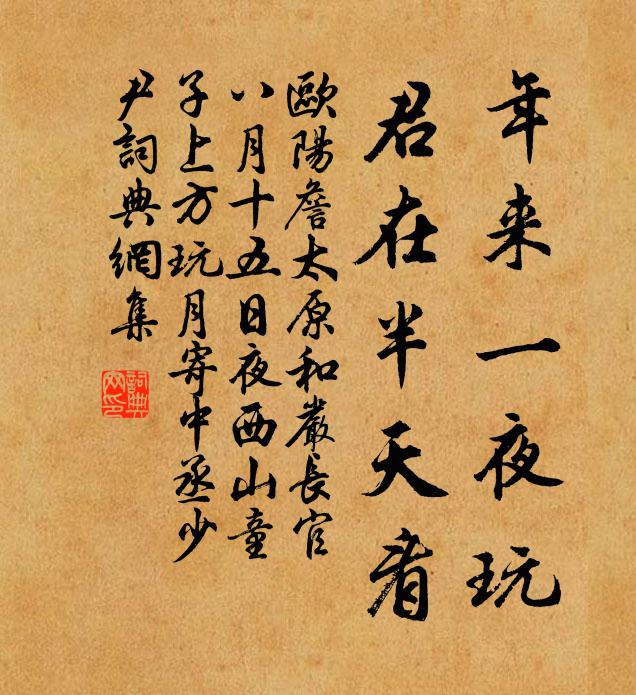 年来一夜玩
君在半天看
歐陽詹太原和嚴長官
八月十五日夜西山童
子上方玩月寄中丞少
尹詞典網集
詞典
网印